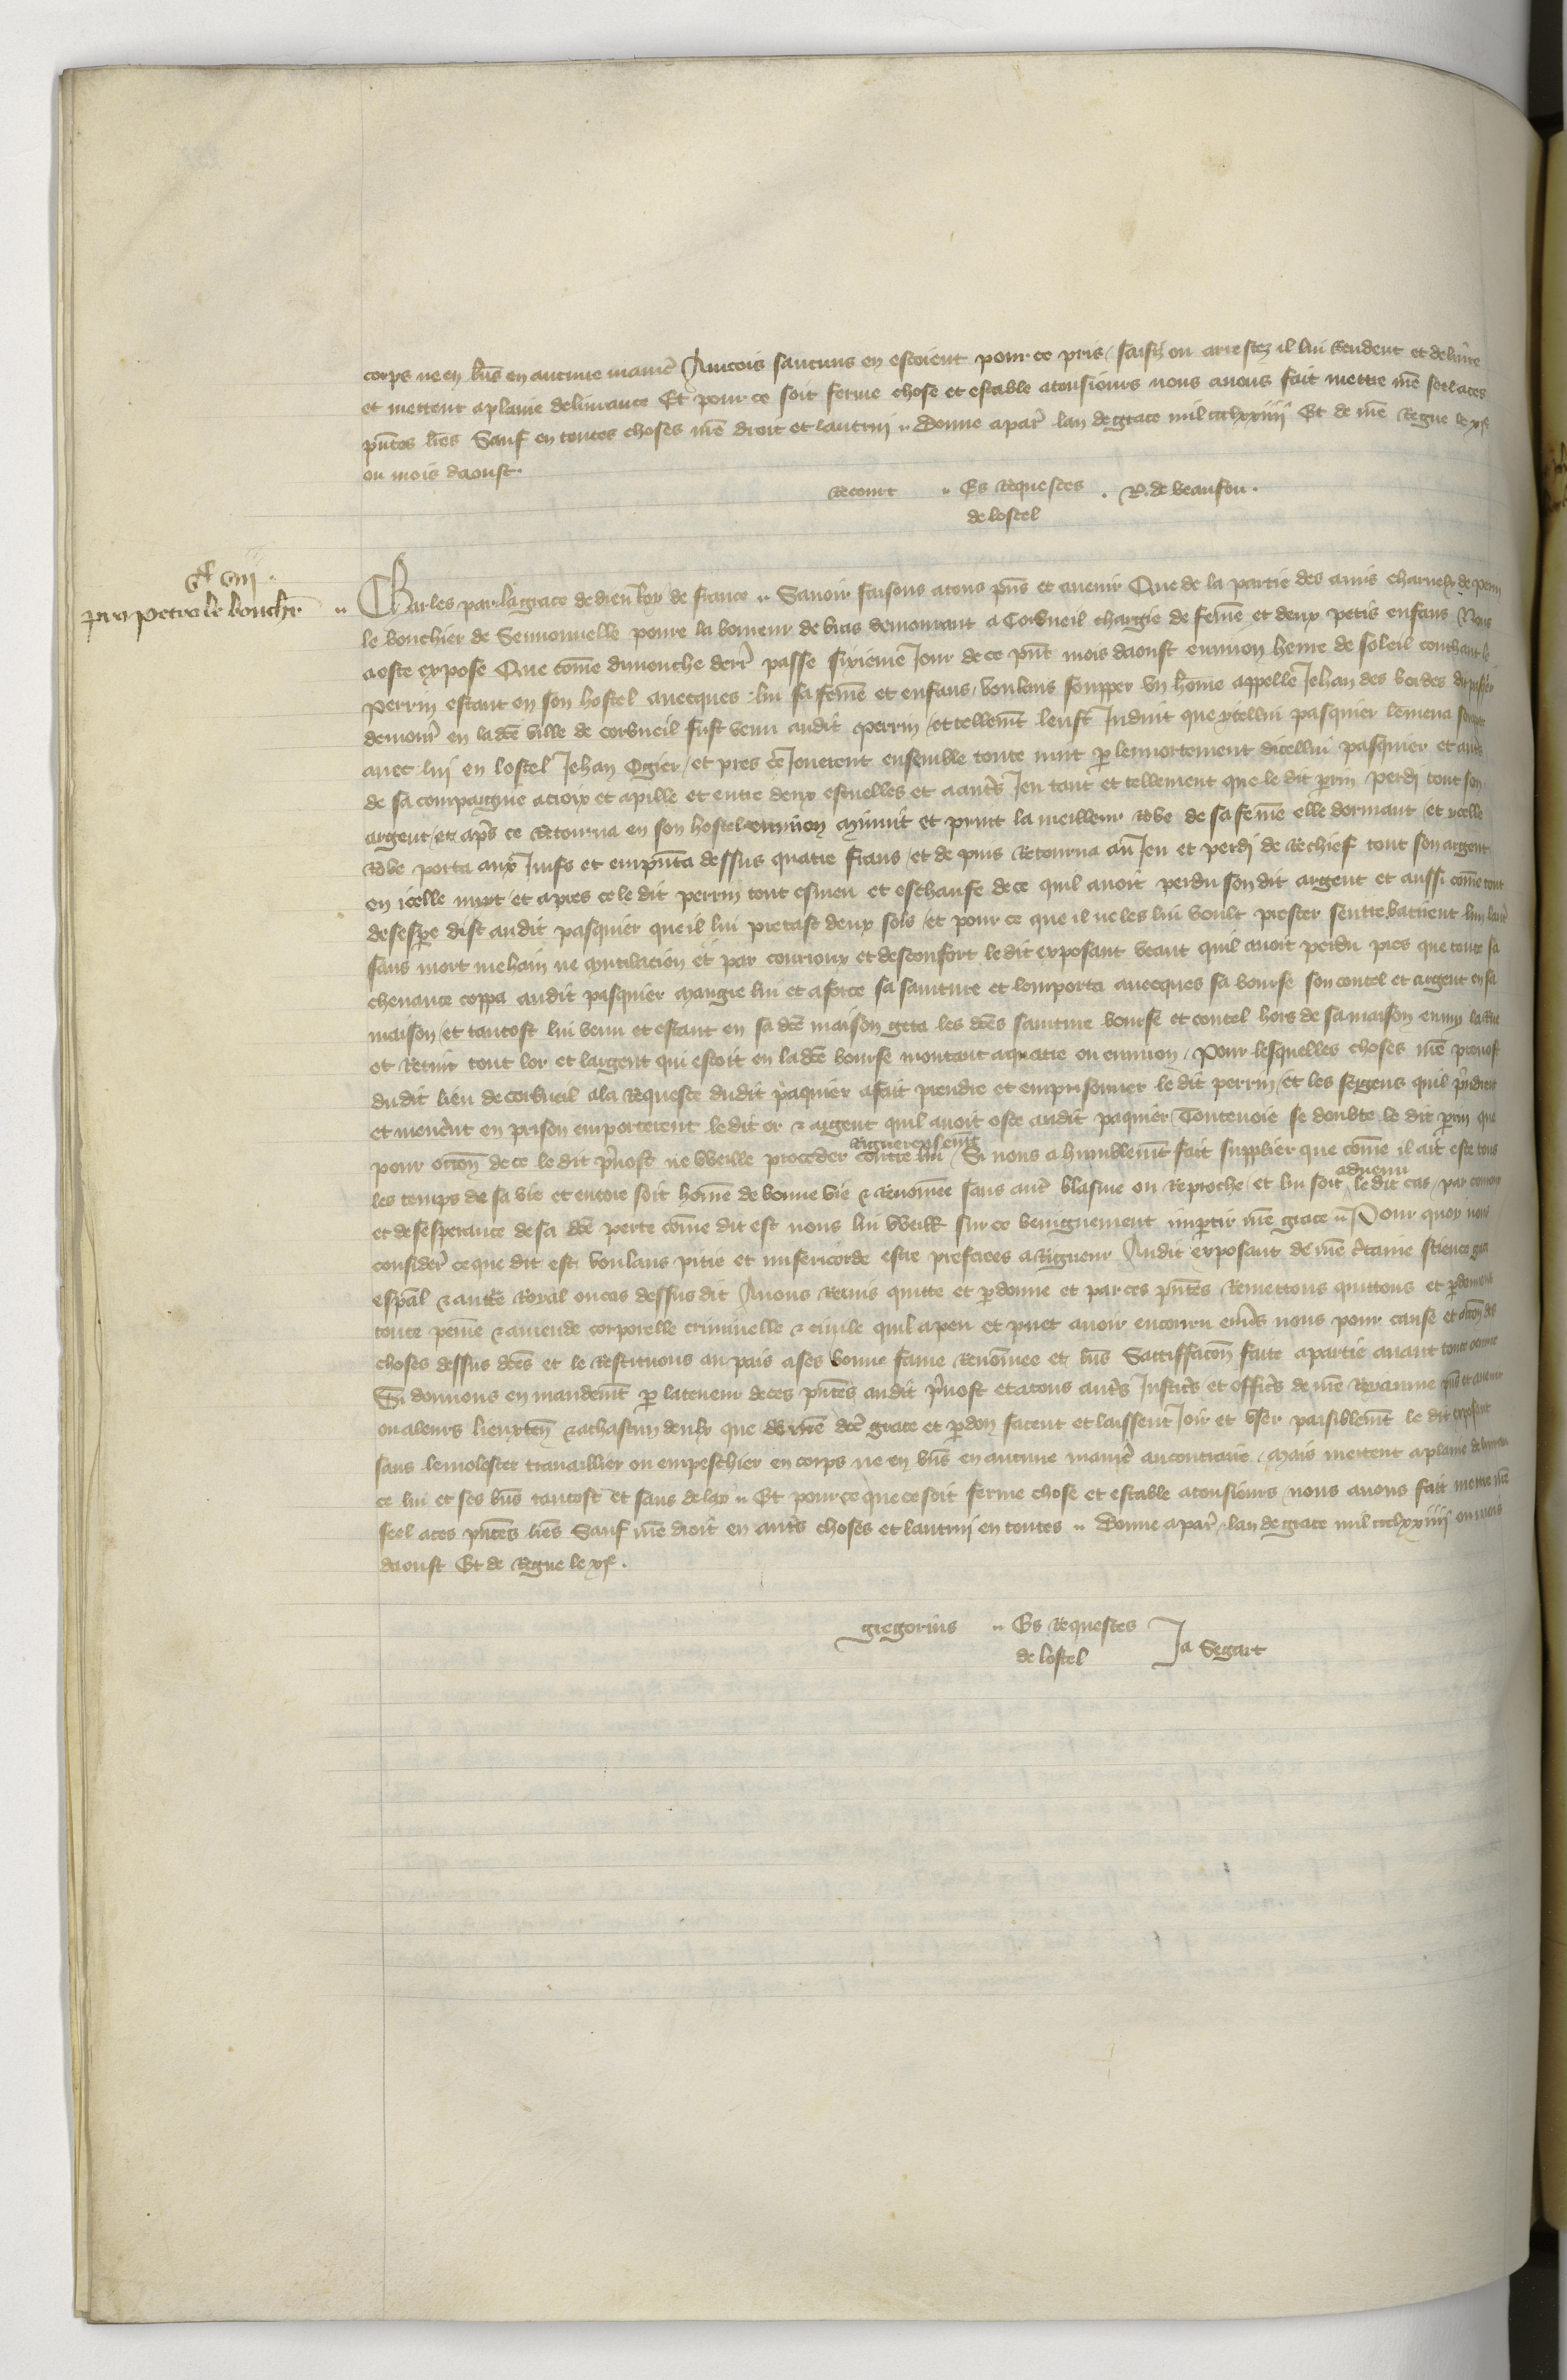 corps ne en biens en aucune maniere Aincois saucuns en estoient pour ce pris saisiz ou arrestez il lui rendent et delivre
et mettent a plaine delivrance Et pour ce soit ferme chose et estable a tousiours nous avons fait mettre nostre seel a ces
pntes lres Sauf en toutes choses nre droit et lautrui Donne a par lan de grace mil ccclxxiiii Et de nre Regne le xie
ou mois daoust
Recourt Es Requestes R. de beaufou
de lostel
CVIII
pro petro le bouchr
Charles par la grace de dieu Roy de france Savoir faisons a tous pns et avenir Que de la partie des amis charnelx de perrin
le bouchier de Sennonnelle povre laboureur de bras demourant a Corbueil chargie de feme et deux petis enfans Nous
a este expose Que come dimenche derr passe sixieme Jour de ce pnt mois daoust environ heure de soleil couchant le
perrin estant en son hostel avecques lui sa feme et enfans voulans soupper un home appelle Jehan des bordes dit pasqer
demour en lade ville de corbueil fust venu audit perrin et tellemt leust Induit que ycellui pasquier lemena soupper
avec lui en lostel Jehan Ogier et pres ce Jouerent ensemble toute nuit p lenortement dicellui pasquier et autrs
de sa compaignie a croix et a pille et entre deux escuelles et a autrs Jeu tant et tellement que le dit prin perdi tout son
argent et aps ce retourna en son hostel environ mynuit et print la meilleur robe de sa feme elle dormant et ycelle
robe porta aux Juifs et emprunta dessus quatre frans et de puis retourna au Jeu et perdi de rechief tout son argent
en icelle nuyt et apres ce le dit perrin tout esmeu et eschaufe de ce quil avoit perdu son dit argent et aussi come tout
desespere dist audit pasquier que il lui pretast deux sols et pour ce que il ne les lui voult prester sentrebatirent lun lautre
sans mort mehain ne mutilacion et par courroux et desconfort le dit exposant veant quil avoit perdu pres que toute sa
chevance coppa audit pasquier maugre lui et a force sa sainture et lemporta avecques sa bourse son coutel et argent en sa
maison et tantost lui venu et estant en sa dce maison geta les dces sainture bourse et coutel hors de sa maison enmy la rue
et retint tout lor et largent qui estoit en ladce bourse montant a quatre ou environ Pour lesquelles choses nre prevost
dudit lieu de corbueil a la requeste dudit paquier a fait prendre et emprisonner le dit perrin et les sergens quil prindrent
et menerent en prison emporterent le dit or et argent quil avoit oste audit paquier Toutevoie se doubte le dit prin que
pour occon de ce le dit prvost ne vueille proceder Rigueureusemt contre lui Si nous a humblemt fait supplier que come il ait este tous
les temps de sa vie et encore soit home de bonne vie et renomee sans autre blasme ou reproche et lui soit advenu le dit cas par courroux
et desesperance de sa dce perte come dit est nous lui vueill sur ce benignement impartir nre grace Pour quoy nous
consider ce que dit est voulans pitie et misericorde estre preferees a Rigueur Audit exposant de nre ctaine science grace
espal et auctte Royal ou cas dessus dit Avons remis quitte et pdonne et par ces pntes Remettons quittons et pdonnons
toute peine et amende corporelle criminelle et civile quil a peu et puet avoir encouru envers nous pour cause et occon des
choses dessus dces et le restituons au pais a ses bonne fame renomee et bns Sattiffacon faite a partie avant toute oeuvre
Si donnons en mandemt p la teneur de ces pntes audit prvost et a tous autrs Justicrs et officrs de nre Royaume pns et avenir
ou a leurs lieuxten et a chascun deulx que de nre dce grace et pdon facent et laissent Joir et user paisiblemt le dit exposant
sans le molester travaillier ou empeschier en corps ne en bns en aucune manre au contraire mais mettent a plaine delivran
ce lui et ses bns tantost et sans delay Et pour ce que ce soit ferme chose et estable a tousiours nous avons fait mettre nre
seel a ces pntes lres Sauf nre droit en autrs choses et lautrui en toutes Donne a par lan de grace mil ccclxxiiii ou mois
daoust Et de Regne le xie
gregorius Es Requestes Ja Segart
de lostel